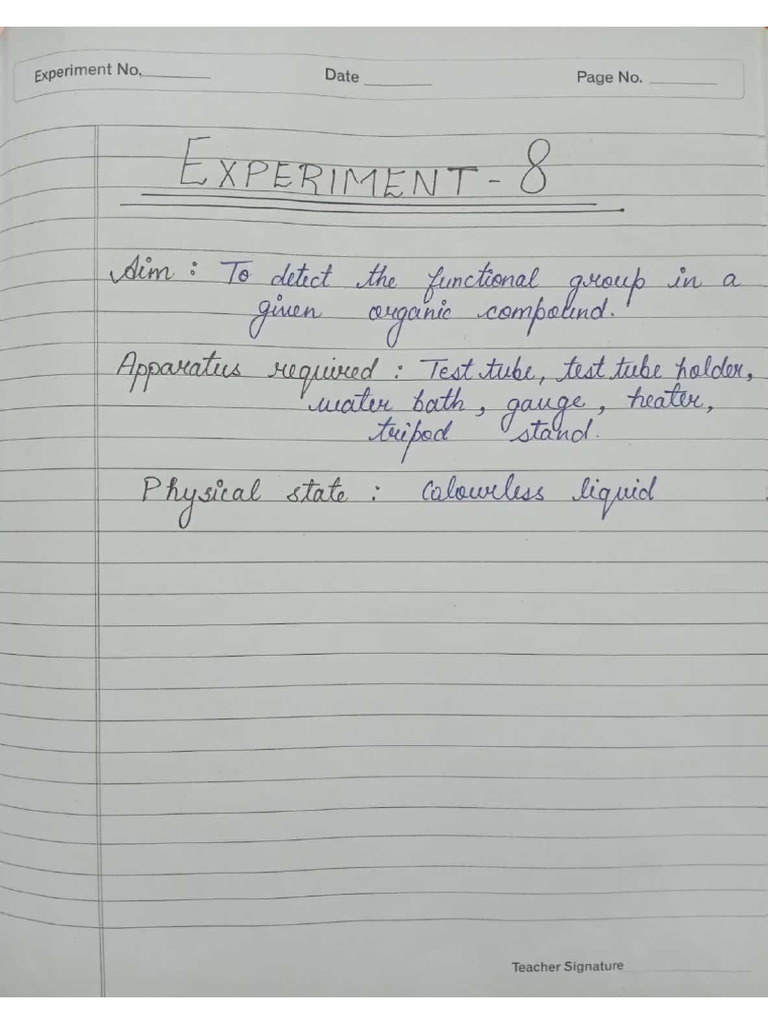 Experiment No.
Date
Page No.
EXPERIMENT - 8
Aim : To detect the functional group in a
given organic compound.
Apparatus required : Test tube, test tube holder,
water bath, gauge, heater,
tripod stand.
Physical state : Colourless liquid
Teacher Signature